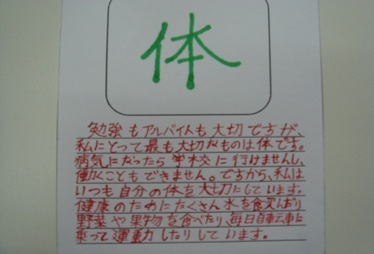 体
勉強もアルバイトも大切ですが、
私にとって最も大切なものは体です。
病気になったら学校に行けませんし、
働くこともできません。ですから、私は
いつも自分の体を大切にしています。
健康のためにたくさん水を飲んだり
野菜や果物を食べたり、毎日自転車に
乗って運動したりしています。